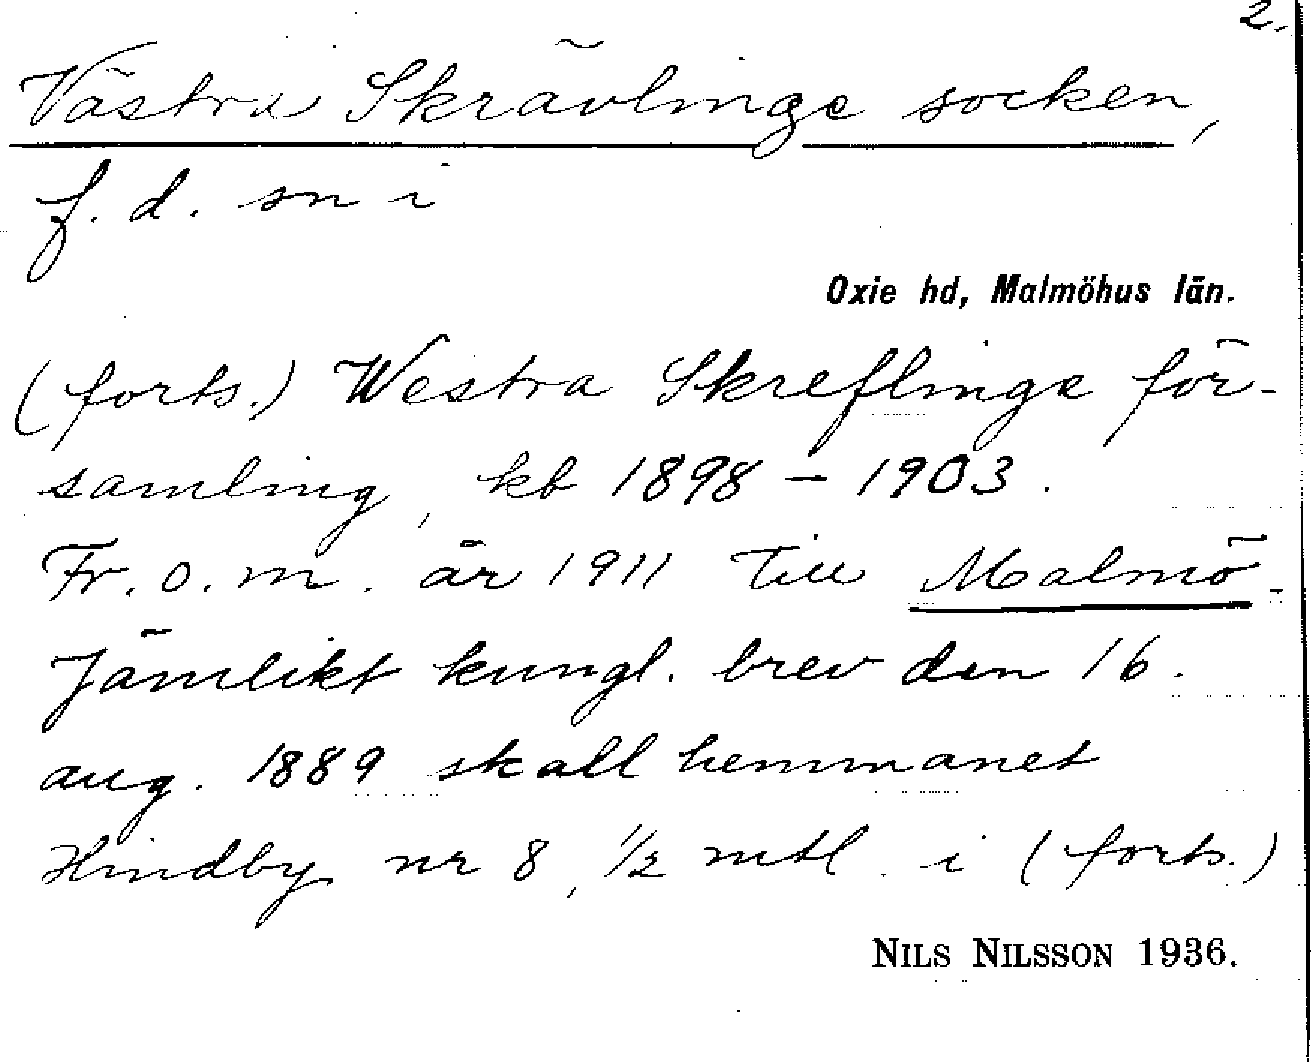 2.
Västra Skrävlinge socken,
f. d. sn i
Oxie hd, Malmöhus län.
(forts.) Westra Skreflinge för-
samling, kb 1898 – 1903.
Fr. o. m. år 1911 till Malmö.
Jämlikt kungl. brev den 16.
aug. 1889 skall hemmanet
Hindby nr 8, 1/2 mtl i (forts.)
NILS NILSSON 1936.